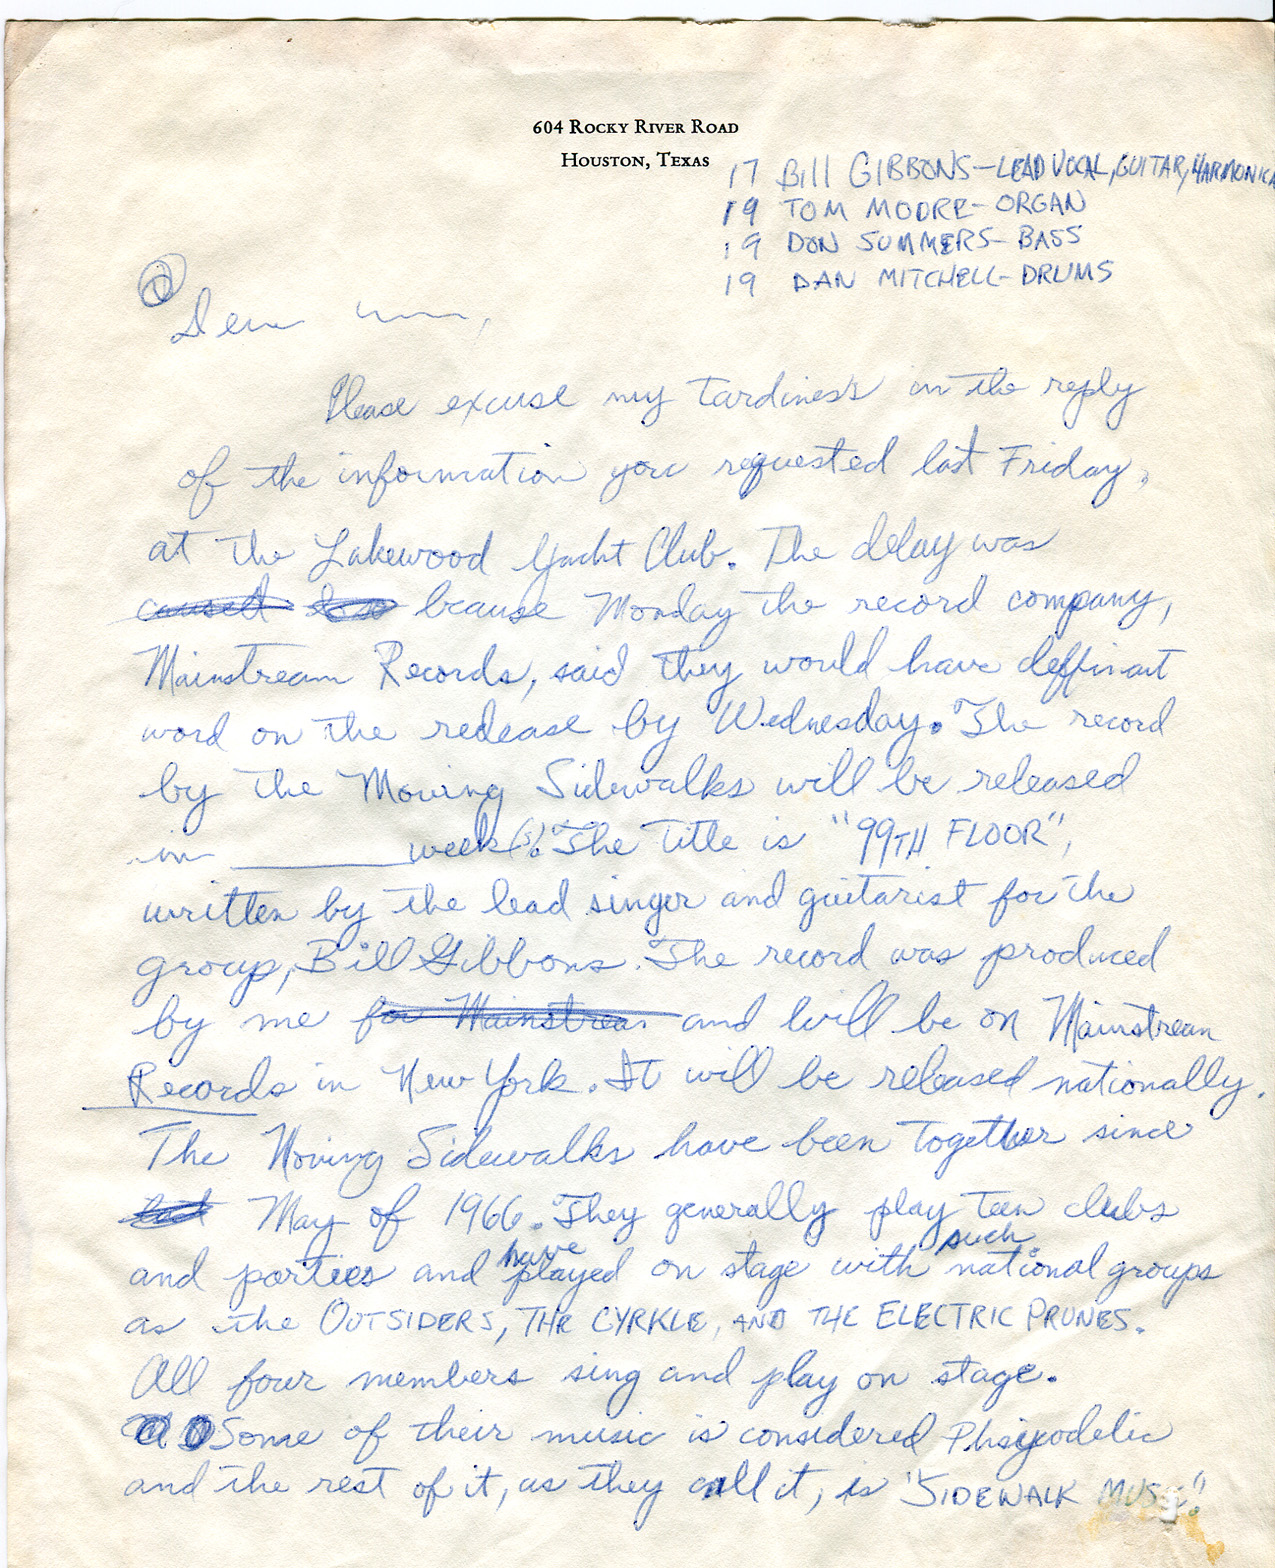 604 ROCKY RIVER ROAD
HOUSTON, TEXAS
17 Bill GIBBONS—LEAD VOCAL, GUITAR, HARMONICA
19 TOM MOORE—ORGAN
19 DON SUMMERS—BASS
19 DAN MITCHELL—DRUMS
①
Dear
Please excuse my tardiness in the reply
of the information you requested last Friday,
at the Lakewood Yacht Club. The delay was
caused becaus because Monday the record company,
Mainstream Records, said they would have deffinant
word on the redease by Wednesday. The record
by the Moving Sidewalks will be released
in ________ week(s). The title is "99TH FLOOR",
written by the lead singer and guitarist for the
group, Bill Gibbons. The record was produced
by me for Mainstrea and will be on Mainstream
Records in New York. It will be released nationally.
The Moving Sidewalks have been together since
last May of 1966. They generally play teen clubs
and parties and have played on stage with such national groups
as the OUTSIDERS, THE CYRKLE, AND THE ELECTRIC PRUNES.
All four members sing and play on stage.
Some of their music is considered Phsycodelic
and the rest of it, as they call it, is "SIDEWALK MUSIC."